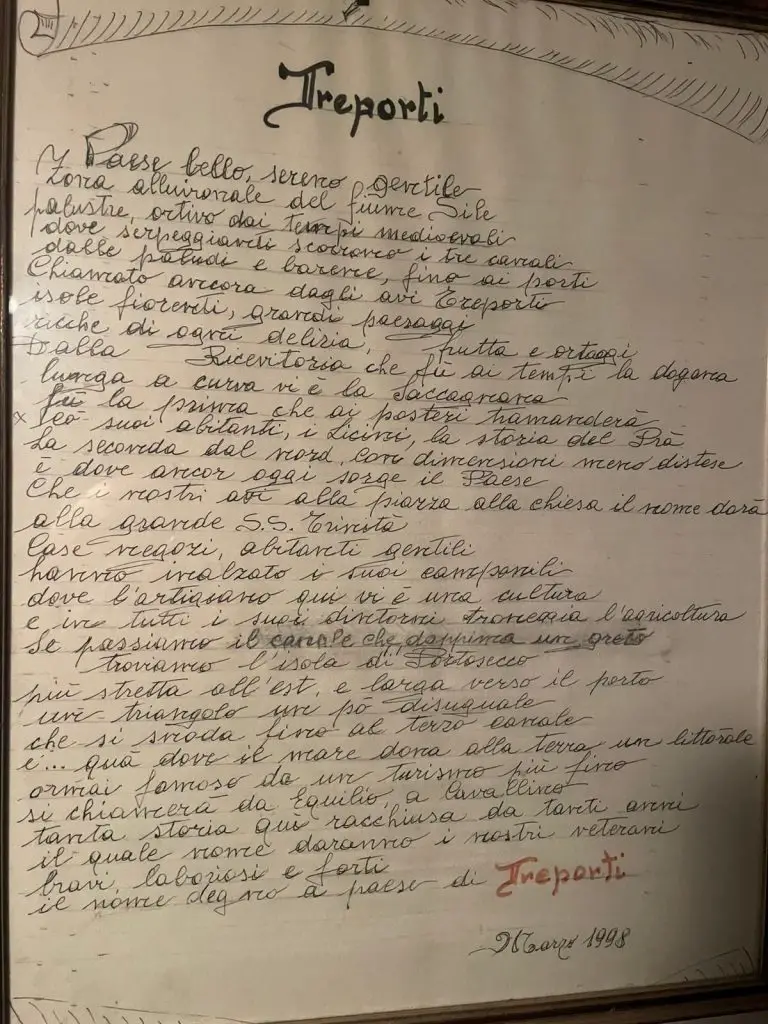 Treporti
Paese bello, sereno gentile
Zona alluvionale del fiume Sile
palustre, ortivo dai tempi medioevali
dove serpeggianti scorrono i tre canali
dalle paludi e barene, fino ai porti
Chiamato ancora dagli avi Treporti
isole fiorenti, grandi paesaggi
ricche di ogni delizia, frutta e ortaggi
Dalla Ricevitoria che fù ai tempi la dogana
lunga a curva vi è la Saccagnana
fù la prima che ai posteri tramanderà
suoi abitanti, i Licini, la storia del Prà
La seconda dal nord, con dimensioni meno distese
è dove ancor oggi sorge il Paese
Che i nostri avi alla piazza alla chiesa il nome darà
alla grande S.S. Trinità
Case negozi, abitanti gentili
hanno inalzato i suoi campanili
dove l'artigiano qui vi è una cultura
e in tutti i suoi dintorni troneggia l'agricoltura
Se passiamo il canale che dappima un greto
troviamo l'isola di Portosecco
più stretta all'est, e larga verso il porto
un triangolo un pò disuguale
che si snoda fino al terzo canale
e... quà dove il mare dona alla terra un littorale
ormai famoso da un turismo più fino
si chiamerà da Equilio, a Cavallino
tanta storia quì racchiusa da tanti anni
il quale nome daranno i nostri veterani
bravi, laboriosi e forti
il nome degno a paese di Treporti
Marzo 1998